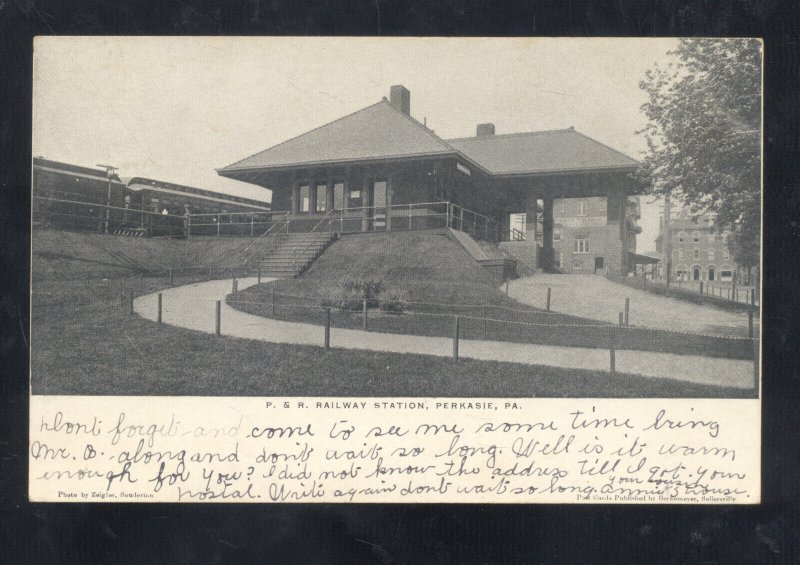 P. & R. RAILWAY STATION, PERKASIE, PA.
Dont forget and come to see me some time bring
Mr. B. along and dont wait so long. Well is it warm
enough for you? I did not know the address till I got your
postal. Write again dont wait so long. Your cousin
Annie
Photo by Zeigler, Souderton
Post Cards Published by Berkemeyer, Sellersville